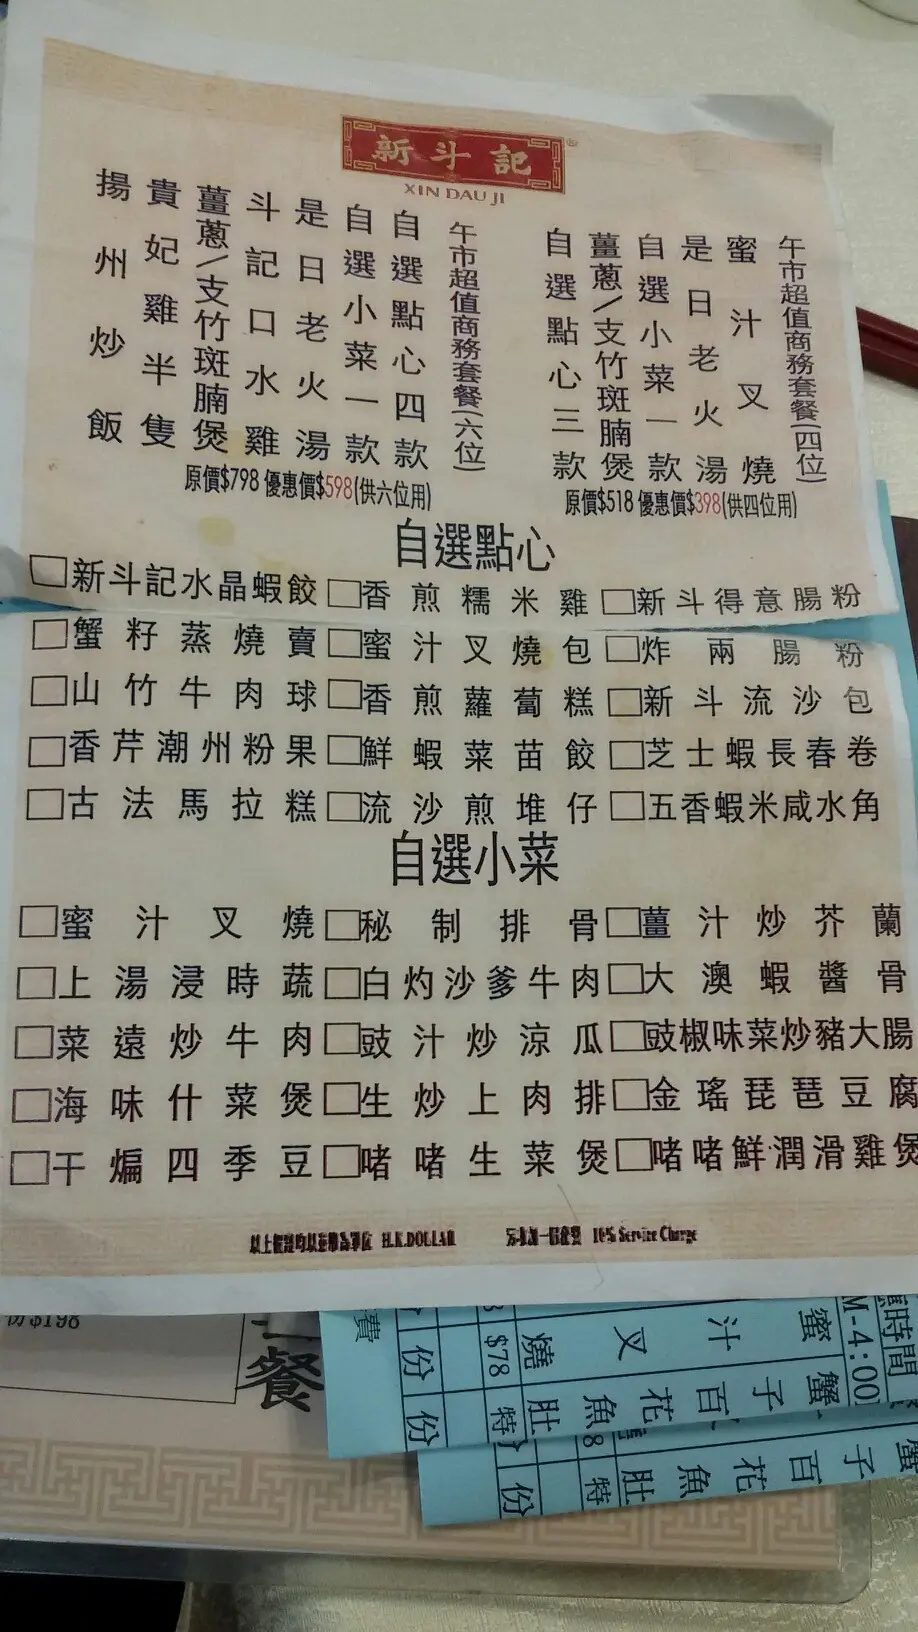 新斗記
XIN DAU JI
午市超值商務套餐(四位)
蜜汁叉燒
是日老火湯
自選小菜一款
薑蔥/支竹斑腩煲
自選點心三款
原價$518 優惠價$398(供四位用)
午市超值商務套餐(六位)
自選點心四款
自選小菜一款
是日老火湯
斗記口水雞
薑蔥/支竹斑腩煲
貴妃雞半隻
揚州炒飯
原價$798 優惠價$598(供六位用)
自選點心
新斗記水晶蝦餃 香煎糯米雞 新斗得意腸粉
蟹籽蒸燒賣 蜜汁叉燒包 炸兩腸粉
山竹牛肉球 香煎蘿蔔糕 新斗流沙包
香芹潮州粉果 鮮蝦菜苗餃 芝士蝦長春卷
古法馬拉糕 流沙煎堆仔 五香蝦米咸水角
自選小菜
蜜汁叉燒 秘制排骨 薑汁炒芥蘭
上湯浸時蔬 白灼沙爹牛肉 大澳蝦醬骨
菜遠炒牛肉 豉汁炒涼瓜 豉椒味菜炒豬大腸
海味什菜煲 生炒上肉排 金瑤琵琶豆腐
干煸四季豆 啫啫生菜煲 啫啫鮮潤滑雞煲
H.K.DOLLAR 10% Service Charge
份$198
餐
時間
M-4:00
蜜汁叉燒
$78
份
費
蟹子百花魚肚
特
份
蟹子百花魚肚
特
份